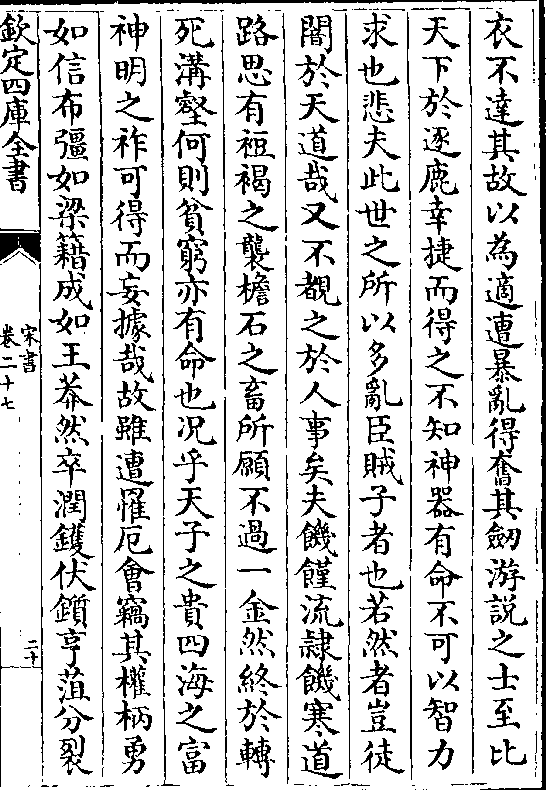 衣不達其故以為適遭暴亂得奮其劒游説之士至比
天下於逐鹿幸捷而得之不知神器有命不可以智力
求也悲夫此世之所以多亂臣賊子者也若然者豈徒
闇於天道哉又不覩之於人事矣夫饑饉流隷饑寒道
路思有裋褐之襲檐石之畜所願不過一金然終於轉
死溝壑何則貧窮亦有命也况乎天子之貴四海之富
神明之祚可得而妄據哉故雖遭罹厄會竊其權柄勇
如信布彊如梁籍成如王莽然卒潤鑊伏鑕亨菹分裂
欽定四庫全書
宋書
卷二十七
二十